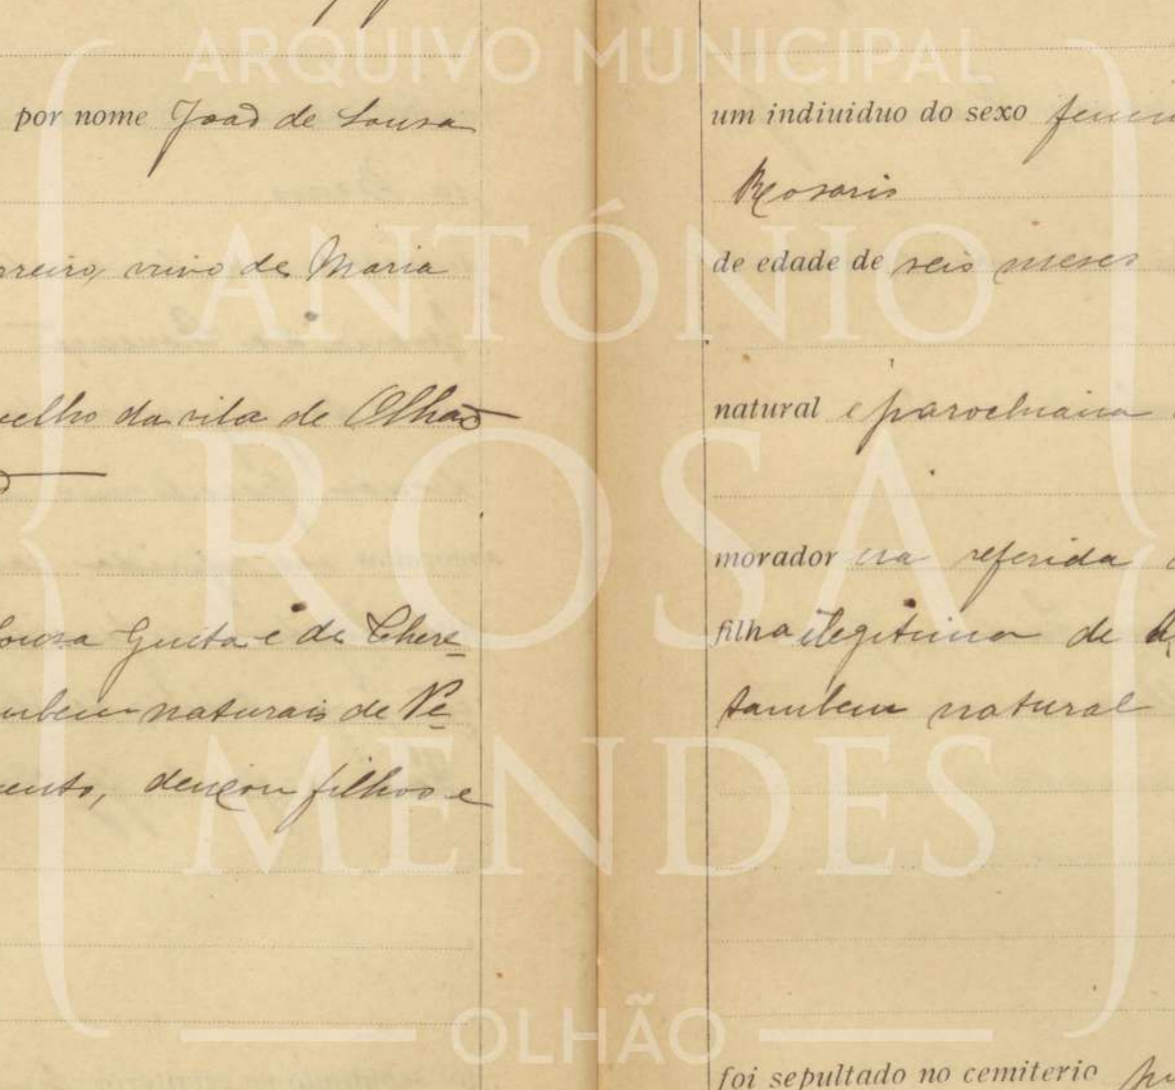 ARQUIVO MUNICIPAL
ANTÓNIO
ROSA
MENDES
OLHÃO
por nome João de Sousa
rreiro, viuvo de Maria
celho da vila de Olhão
Sousa Guita e de There
mbem naturais de Pe
mento, deixou filhos e
um indiuiduo do sexo femen
Rosario
de edade de seis meses
natural e parochiana
morador na referida
filha ilegitima de
tambem natural
foi sepultado no cemiterio